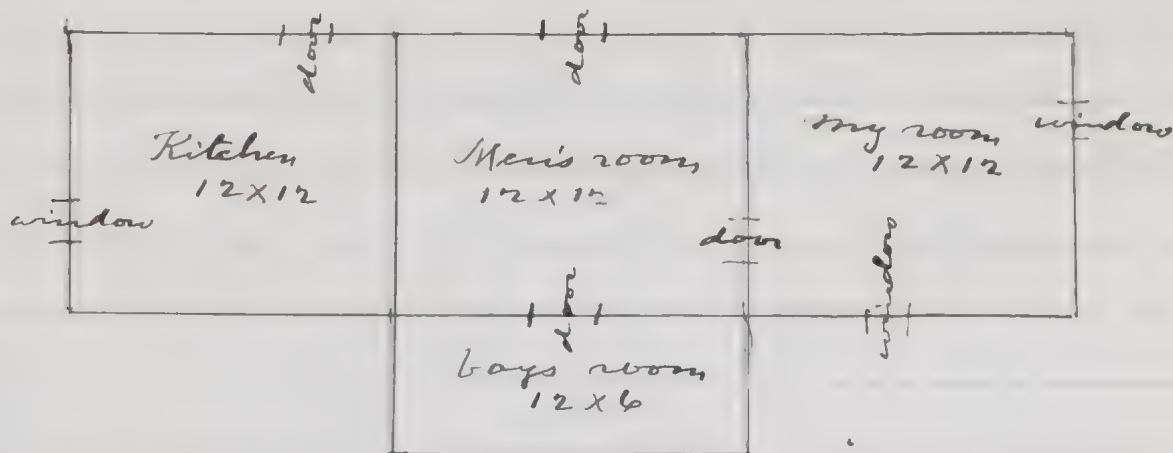 door
door
Kitchen
12 x 12
window
Men's room
12 x 12
door
my room
12 x 12
window
window
door
boys room
12 x 6